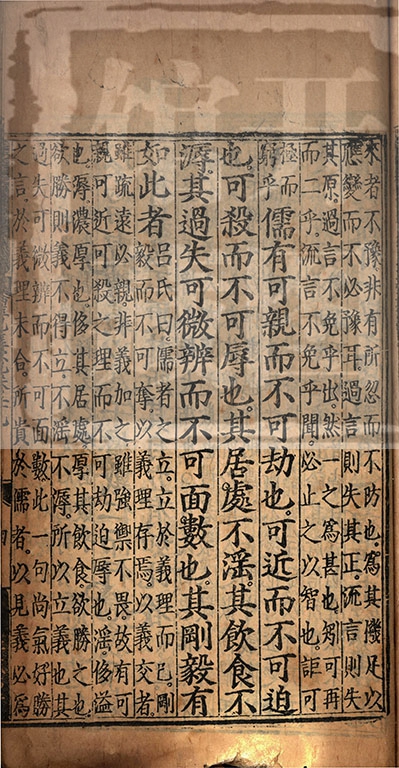 來者不豫非有所忽而不防也爲其機足以
應變而不必豫耳過言則失其正流言則失
其原過言不免乎出然一之爲甚也矧可再
而二乎流言不免乎聞必止之以智也詎可
極而
窮乎
儒有可親而不可劫也可近而不可迫
也可殺而不可辱也其居處不淫其飲食不
溽其過失可微辨而不可面數也其剛毅有
如此者
呂氏曰儒者之立立於義理而已剛
毅而不可奪以義理存焉以義交者
雖疏遠必親非義加之雖強禦不畏故有可
親可近可殺之理而不可劫迫辱也淫侈溢
也溽濃厚也侈其居處厚其飲食欲勝之也
欲勝則義不得立不淫不溽所以立義也其
過失可微辨而不可面數此一句尚氣好勝
之言於義理未合所貴於儒者以見義必爲